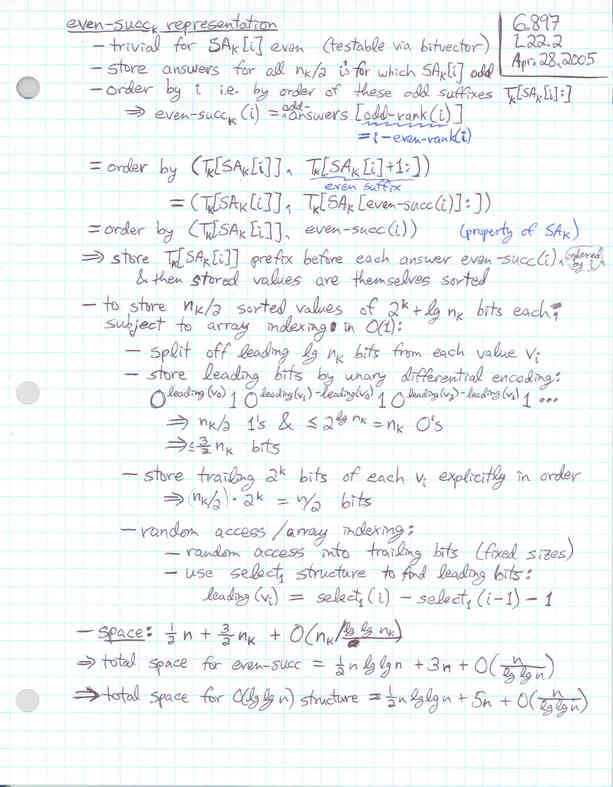 even-succₖ representation
6.897
L22.2
Apr. 28, 2005
– trivial for SAₖ[i] even (testable via bitvector)
– store answers for all nₖ/2 i's for which SAₖ[i] odd
– order by i i.e. by order of these odd suffixes Tₖ[SAₖ[i]:]
⇒ even-succₖ(i) = odd-answers [odd-rank(i)]
= i – even-rank(i)
= order by (Tₖ[SAₖ[i]], Tₖ[SAₖ[i]+1:])
even suffix
= (Tₖ[SAₖ[i]], Tₖ[SAₖ[even-succ(i)]:])
= order by (Tₖ[SAₖ[i]], even-succ(i)) (property of SAₖ)
⇒ store Tₖ[SAₖ[i]] prefix before each answer even-succ(i), ordered by i,
& then stored values are themselves sorted
– to store nₖ/2 sorted values of 2ᵏ + lg nₖ bits each,
subject to array indexing in O(1):
– split off leading lg nₖ bits from each value vᵢ
– store leading bits by unary differential encoding:
0^leading(v₀) 1 0^leading(v₁)–leading(v₀) 1 0^leading(v₂)–leading(v₁) 1 ...
⇒ nₖ/2 1's & ≤ 2^lg nₖ = nₖ 0's
⇒ ≤ 3/2 nₖ bits
– store trailing 2ᵏ bits of each vᵢ explicitly in order
⇒ (nₖ/2) · 2ᵏ = n/2 bits
– random access/array indexing:
– random access into trailing bits (fixed sizes)
– use select₁ structure to find leading bits:
leading(vᵢ) = select₁(i) – select₁(i–1) – 1
– space: ½ n + 3/2 nₖ + O(nₖ/lg lg nₖ)
⇒ total space for even-succ = ½ n lg lg n + 3n + O(n/lg lg n)
⇒ total space for O(lg lg n) structure = ½ n lg lg n + 5n + O(n/lg lg n)